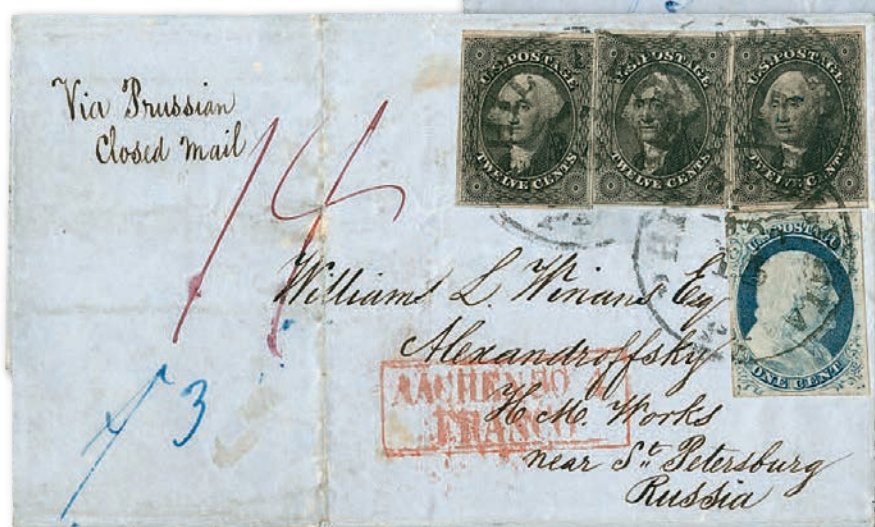 Via Prussian
Closed mail
U.S. POSTAGE
TWELVE CENTS
U.S. POSTAGE
TWELVE CENTS
U.S. POSTAGE
TWELVE CENTS
U.S. POSTAGE
ONE CENT
William L. Winans Esq
Alexandroffsky
H. M. Works
near St. Petersburg
Russia
AACHEN 30 4
FRANCO
3